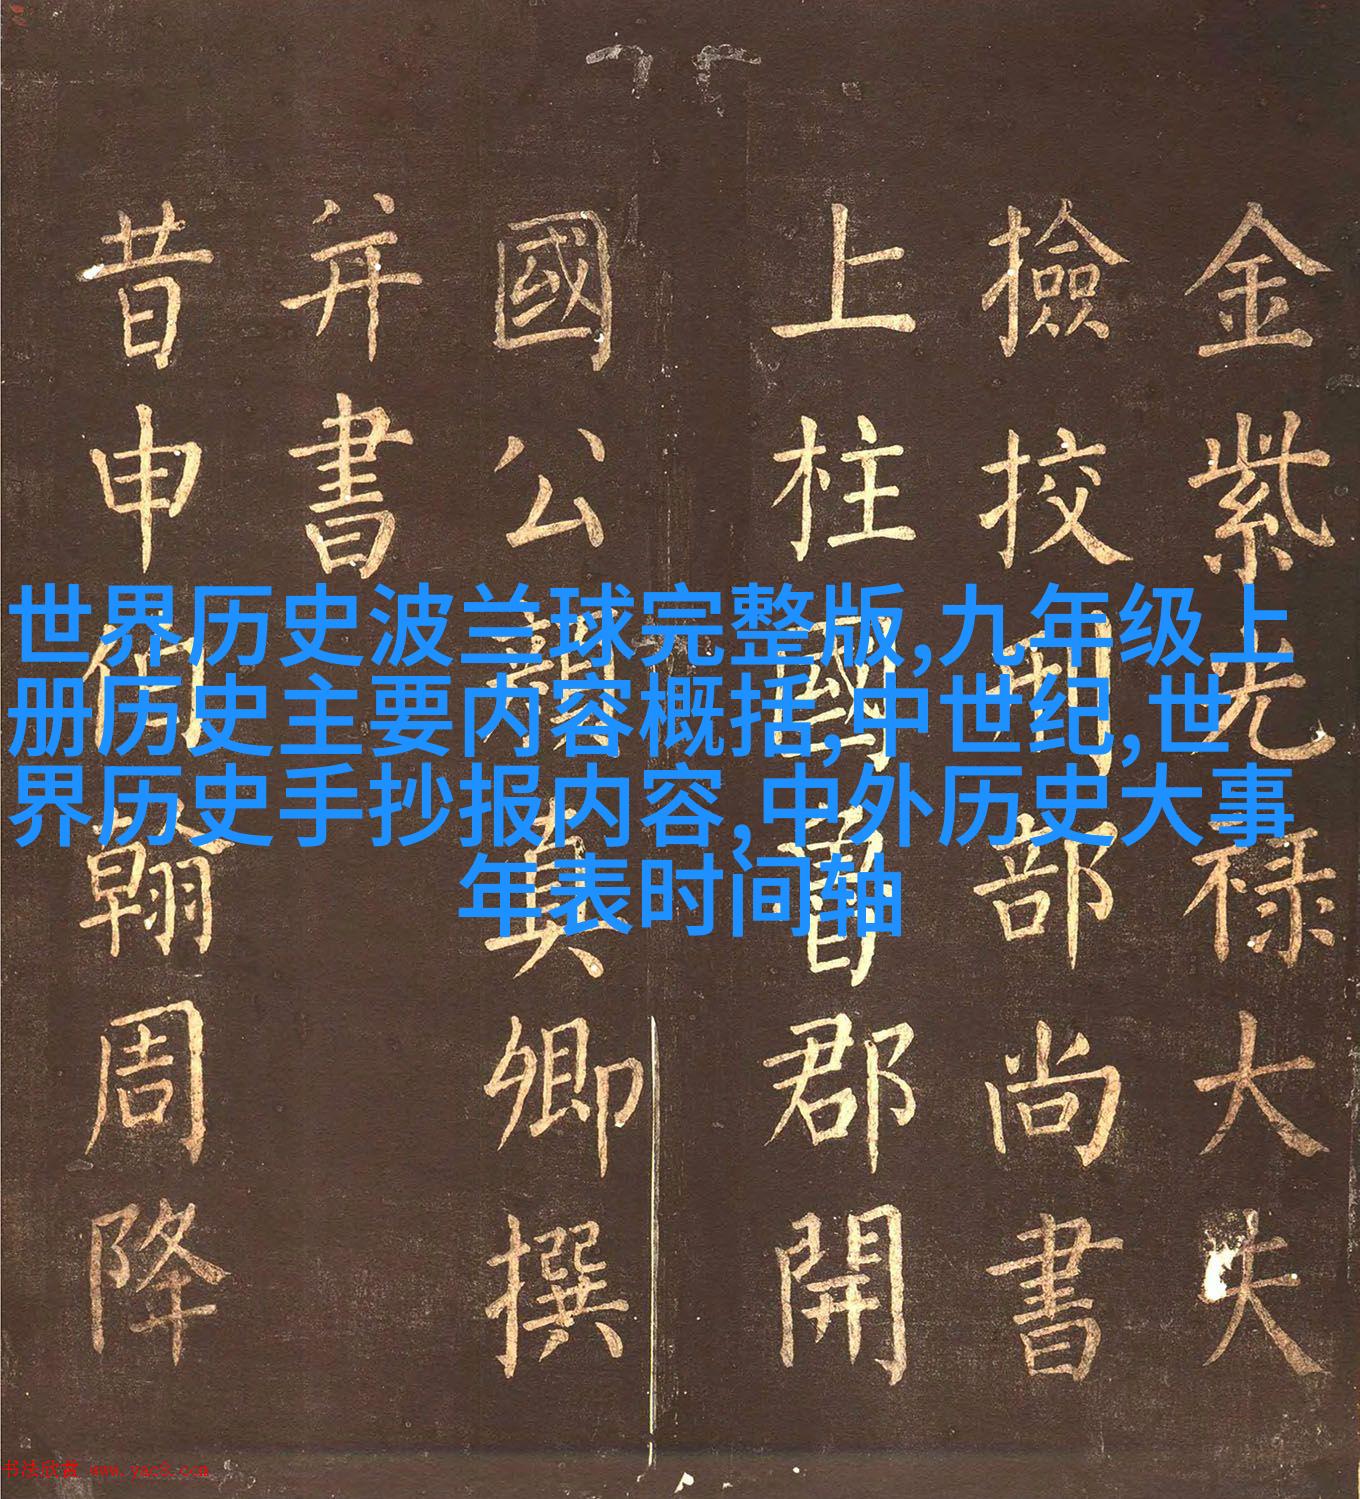 金紫光禄大夫
撿挍刑部尚書
上柱國魯郡開
國公顏真卿撰
并書
昔申伯翰周降
世界历史波兰球完整版,九年级上
册历史主要内容概括,中世纪,世
界历史手抄报内容,中外历史大事
年表时间轴
书法欣赏 www.yac8.com